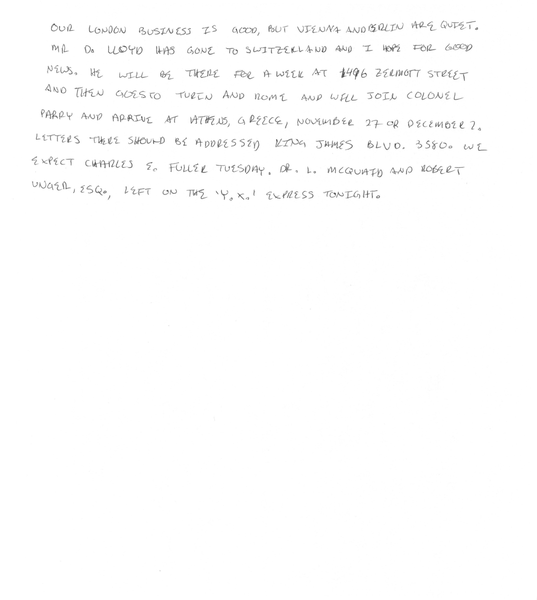 OUR LONDON BUSINESS IS GOOD, BUT VIENNA AND BERLIN ARE QUIET.
MR D. LLOYD HAS GONE TO SWITZERLAND AND I HOPE FOR GOOD
NEWS. HE WILL BE THERE FOR A WEEK AT 1496 ZERMOTT STREET
AND THEN GOES TO TURIN AND ROME AND WILL JOIN COLONEL
PARRY AND ARRIVE AT ATHENS, GREECE, NOVEMBER 27 OR DECEMBER 2.
LETTERS THERE SHOULD BE ADDRESSED KING JAMES BLVD. 3580. WE
EXPECT CHARLES E. FULLER TUESDAY. DR. L. MCQUAID AND ROBERT
UNGER, ESQ., LEFT ON THE 'Y.X.' EXPRESS TONIGHT.